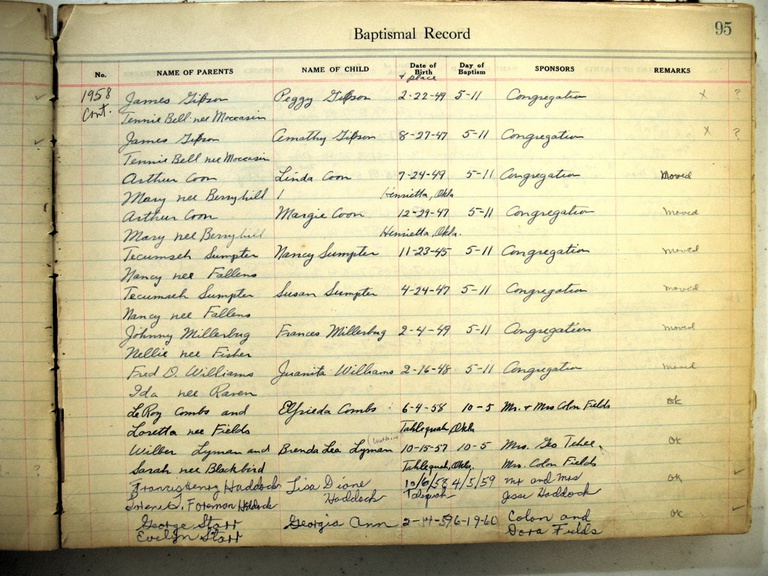 Baptismal Record 95
No. NAME OF PARENTS NAME OF CHILD Date of Birth Day of Baptism SPONSORS REMARKS
+ place
1958 James Gibson Peggy Gibson 2-22-49 5-11 Congregation x ?
Cont. Tennie Bell nee Moccasin
James Gibson Amathy Gibson 8-27-47 5-11 Congregation x ?
Tennie Bell nee Moccasin
Arthur Coon Linda Coon 7-24-49 5-11 Congregation Moved
Mary nee Berryhill Henrietta, Okla
Arthur Coon Margie Coon 12-29-47 5-11 Congregation moved
Mary nee Berryhill Henrietta, Okla.
Tecumseh Sumpter Nancy Sumpter 11-23-45 5-11 Congregation moved
Nancy nee Fallens
Tecumseh Sumpter Susan Sumpter 4-24-47 5-11 Congregation moved
Nancy nee Fallens
Johnny Millerbug Frances Millerbug 2-4-49 5-11 Congregation moved
Nellie nee Fisher
Fred O. Williams Juanita Williams 2-16-48 5-11 Congregation moved
Ida nee Raven
LeRoy Combs and Elfrieda Combs 6-4-58 10-5 Mr. + Mrs Colon Fields ok
Loretta nee Fields Tahlequah, Okla
Wilber Lyman and Brenda Lea Lyman 10-15-57 10-5 Mrs. Geo Tehee, OK
Sarah nee Blackbird Tahlequah, Okla. Mrs. Colon Fields
Francis Henry Haddock Lisa Diane 10/6/58 4/5/59 Mr and Mrs OK
Foreman Haddock Haddock Jesse Haddock
George Starr Georgia Ann 2-14-59 6-19-60 Colon and OK
Evelyn Starr Dora Fields